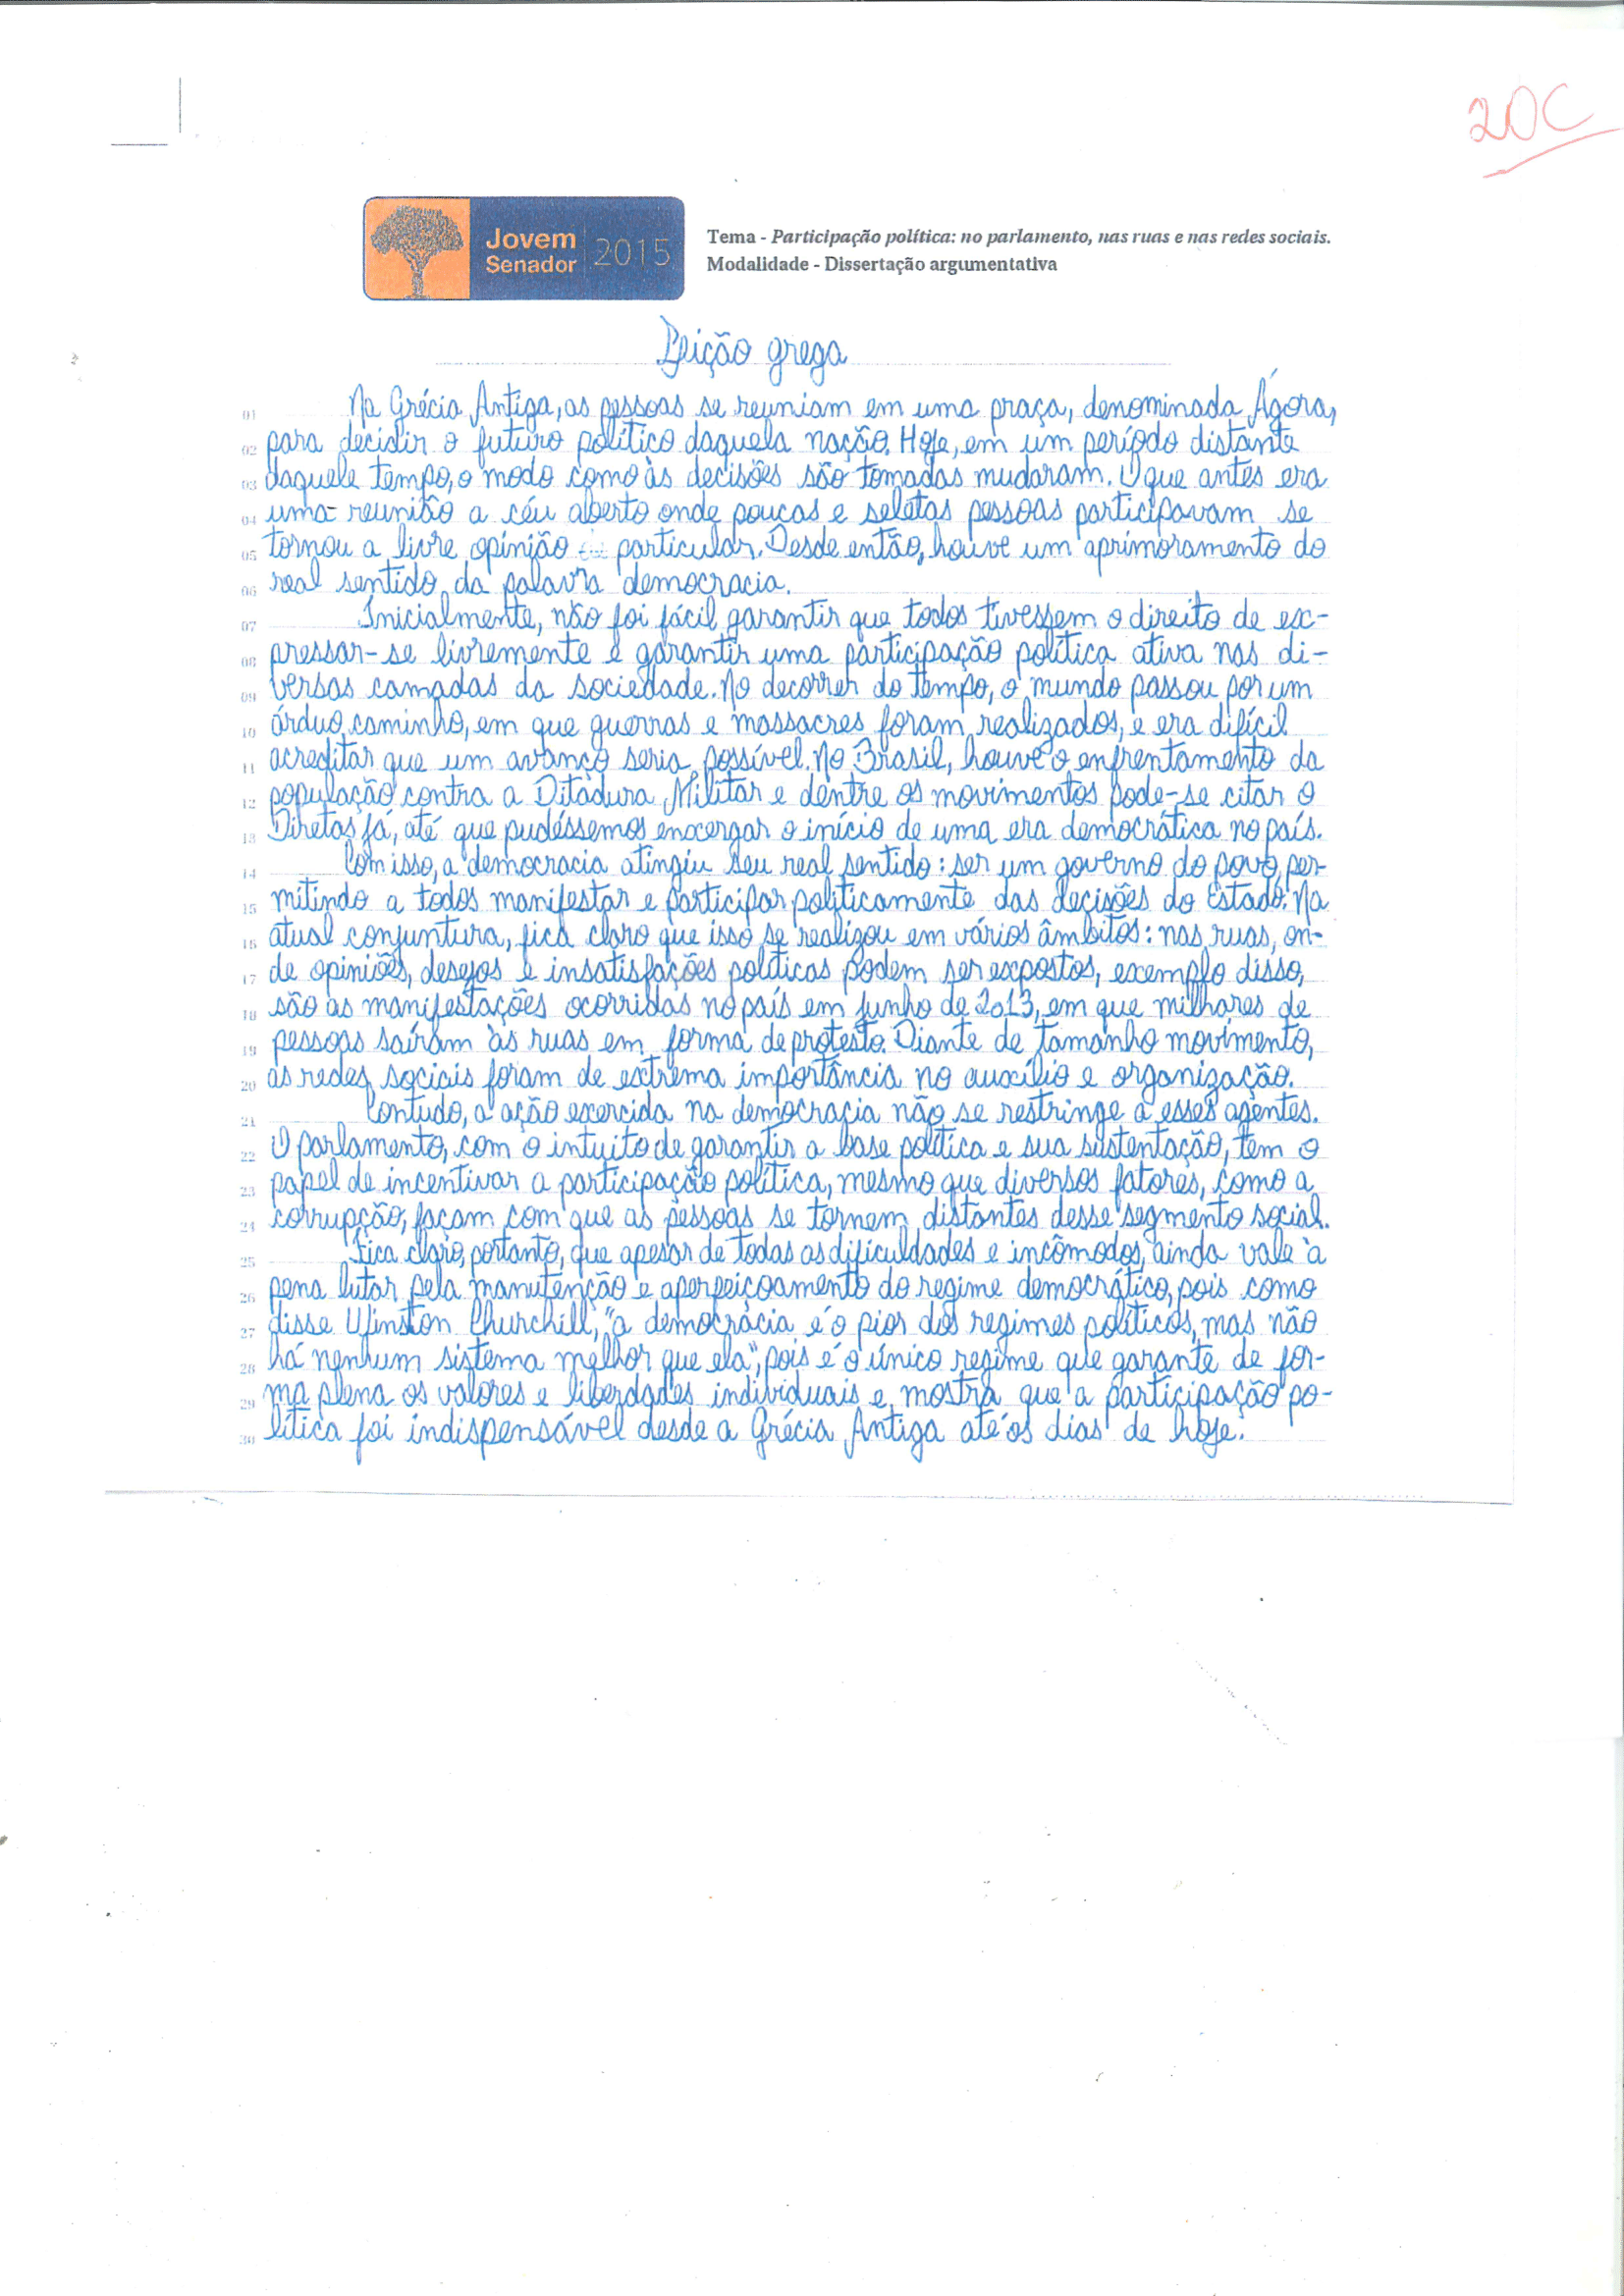 20C
Jovem
Senador
2015
Tema - Participação política: no parlamento, nas ruas e nas redes sociais.
Modalidade - Dissertação argumentativa
Lição grega
01 Na Grécia Antiga, as pessoas se reuniam em uma praça, denominada Ágora,
02 para decidir o futuro político daquela nação. Hoje, em um período distante
03 daquele tempo, o modo como às decisões são tomadas mudaram. O que antes era
04 uma reunião a céu aberto onde poucas e seletas pessoas participavam, se
05 tornou a livre opinião particular. Desde então, houve um aprimoramento do
06 real sentido da palavra democracia.
07 Inicialmente, não foi fácil garantir que todos tivessem o direito de ex-
08 pressar-se livremente e garantir uma participação política ativa nas di-
09 versas camadas da sociedade. No decorrer do tempo, o mundo passou por um
10 árduo caminho, em que guerras e massacres foram realizados, e era difícil
11 acreditar que um avanço seria possível. No Brasil, houve o enfrentamento da
12 população contra a Ditadura Militar e dentre os movimentos pode-se citar o
13 Diretas Já, até que pudéssemos enxergar o início de uma era democrática no país.
14 Com isso, a democracia atingiu seu real sentido: ser um governo do povo, per-
15 mitindo a todos manifestar e participar politicamente das decisões do Estado. Na
16 atual conjuntura, fica claro que isso se realizou em vários âmbitos: nas ruas, on-
17 de opiniões, desejos e insatisfações políticas podem ser expostos, exemplo disso,
18 são as manifestações ocorridas no país em junho de 2013, em que milhares de
19 pessoas saíram às ruas em forma de protesto. Diante de tamanho movimento,
20 as redes sociais foram de extrema importância no auxílio e organização.
21 Contudo, a ação exercida na democracia não se restringe a esses agentes.
22 O parlamento, com o intuito de garantir a base política e sua sustentação, tem o
23 papel de incentivar a participação política, mesmo que diversos fatores, como a
24 corrupção, façam com que as pessoas se tornem distantes desse segmento social.
25 Fica claro, portanto, que apesar de todas as dificuldades e incômodos, ainda vale à
26 pena lutar pela manutenção e aperfeiçoamento do regime democrático, pois como
27 disse Winston Churchill, "a democracia é o pior dos regimes políticos, mas não
28 há nenhum sistema melhor que ela", pois é o único regime que garante de for-
29 ma plena os valores e liberdades individuais e mostra que a participação po-
30 lítica foi indispensável desde a Grécia Antiga até os dias de hoje.